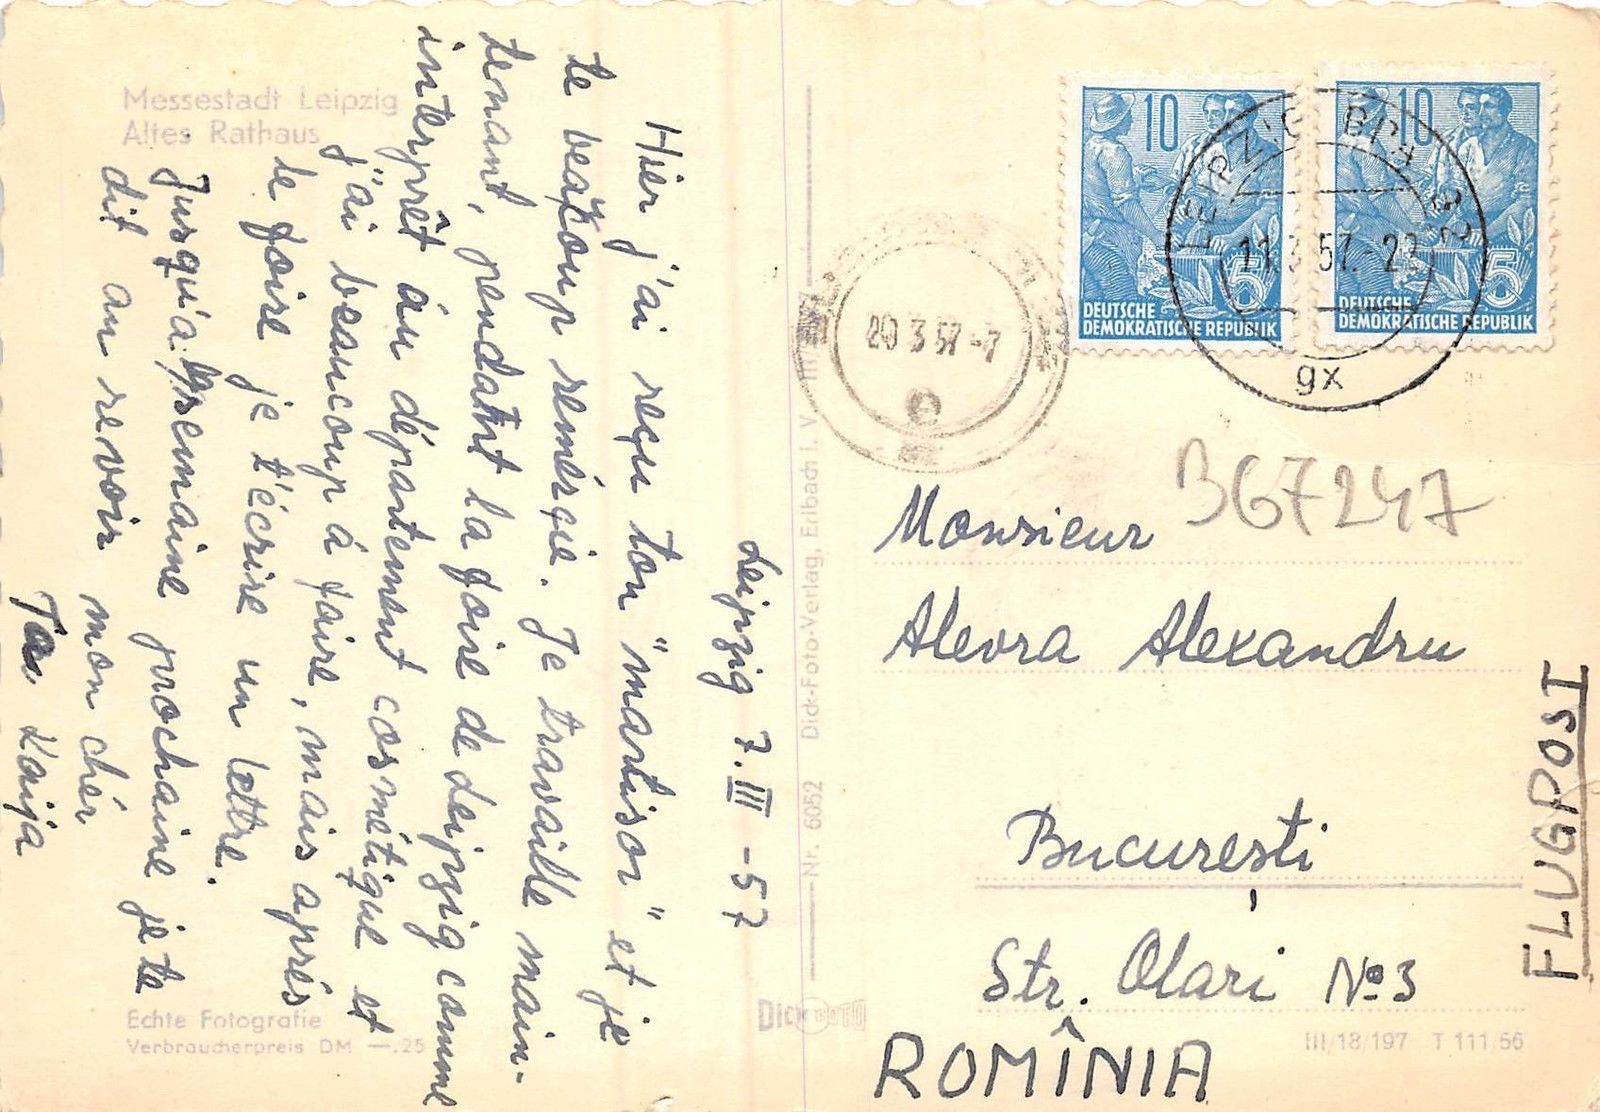 Messestadt Leipzig
Altes Rathaus
Leipzig 7.III-57
Hier j'ai reçu ton "martisor" et je
te beaucoup remérçie. Je travaille main-
tenant, pendant la foire de Leipzig comme
interprêt áu département cosmétique et
j'ai beaucoup á faire, mais aprés
le foire je t'écrire un lettre.
Jusqu'a semaine prochaine je te
dit au revoir
mon chér
Ta Kaija
Echte Fotografie
Verbraucherpreis DM —.25
Nr. 6052 Dick-Foto-Verlag, Erlbach i. V.
Dick FOTO
10
5
DEUTSCHE
DEMOKRATISCHE REPUBLIK
10
5
DEUTSCHE
DEMOKRATISCHE REPUBLIK
LEIPZIG BPA 32
11.3.57.-23
gx
20 3 57-7
367247
Monsieur
Alevra Alexandru
Bucureşti
Str. Olari No 3
ROMÎNIA
FLUGPOST
III/18/197 T 111/56